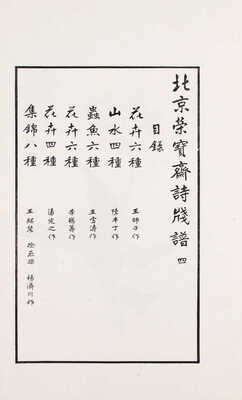 北京榮寶齋詩牋譜 四
目錄
花卉六種 王師子作
山水四種 陸辛丁作
蟲魚六種 王雪濤作
花卉六種 李鶴籌作
花卉四種 湯定之作
集錦八種 王羥 徐燕孫 楊濟川作